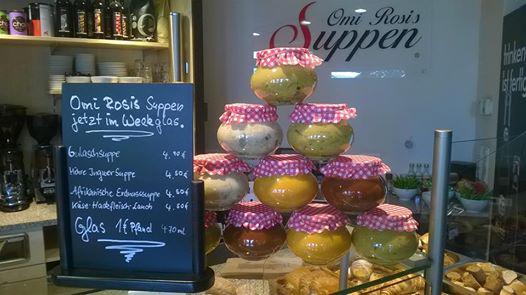 Omi Rosis
Suppen
Omi Rosis Suppen
jetzt im Weckglas.
Gulaschsuppe 4,90€
Möhre Ingwer Suppe 4,50€
Afrikanische Erdnusssuppe 4,50€
Käse-Hackfleisch-Lauch 4,50€
Glas 1€ Pfand 470ml
ist fertig